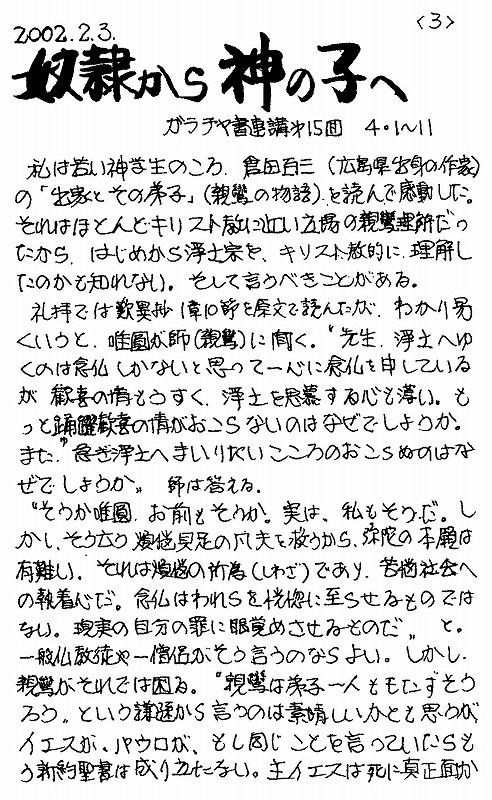 〈3〉
2002.2.3.
奴隷から神の子へ
ガラテヤ書連講オ15回 4・1〜11
私は若い神学生のころ、倉田百三(広島県出身の作家)
の「出家とその弟子」(親鸞の物語)を読んで感動した。
それはほとんどキリスト教に近い立場の親鸞理解だっ
たから、はじめから浄土宗を、キリスト教的に理解し
たのかも知れない。そして言うべきことがある。
礼拝では歎異抄 第10節を原文で読んだが、わかり易
くいうと、唯圓が師(親鸞)に聞く。“先生、浄土へゆ
くのは念仏しかないと思って一心に念仏を申している
が 歓喜の情もうすく、浄土を思慕する心も薄い。も
っと踊躍歓喜の情がおこらないのはなぜでしょうか。
また“急ぎ浄土へまいりたいこころのおこらぬのはな
ぜでしょうか” 師は答える。
“そうか唯圓、お前もそうか。実は、私もそうだ。し
かし、そう云う煩悩具足の凡夫を救うから、弥陀の本願は
有難い。それは煩悩の所為(しわざ)であり、苦悩社会へ
の執着心だ。念仏はわれらを恍惚に至らせるものでは
ない。現実の自分の罪に眼覚めさせるものだ” と。
一般仏教徒や一僧侶がそう言うのならよい。しかし、
親鸞がそれでは困る。“親鸞は弟子一人ももたずそう
ろう”という謙遜から言うのは素晴しいかとも思うが、
イエスが、パウロが、もし同じことを言っていたらも
う新約聖書は成り立たない。主イエスは死に真正面か